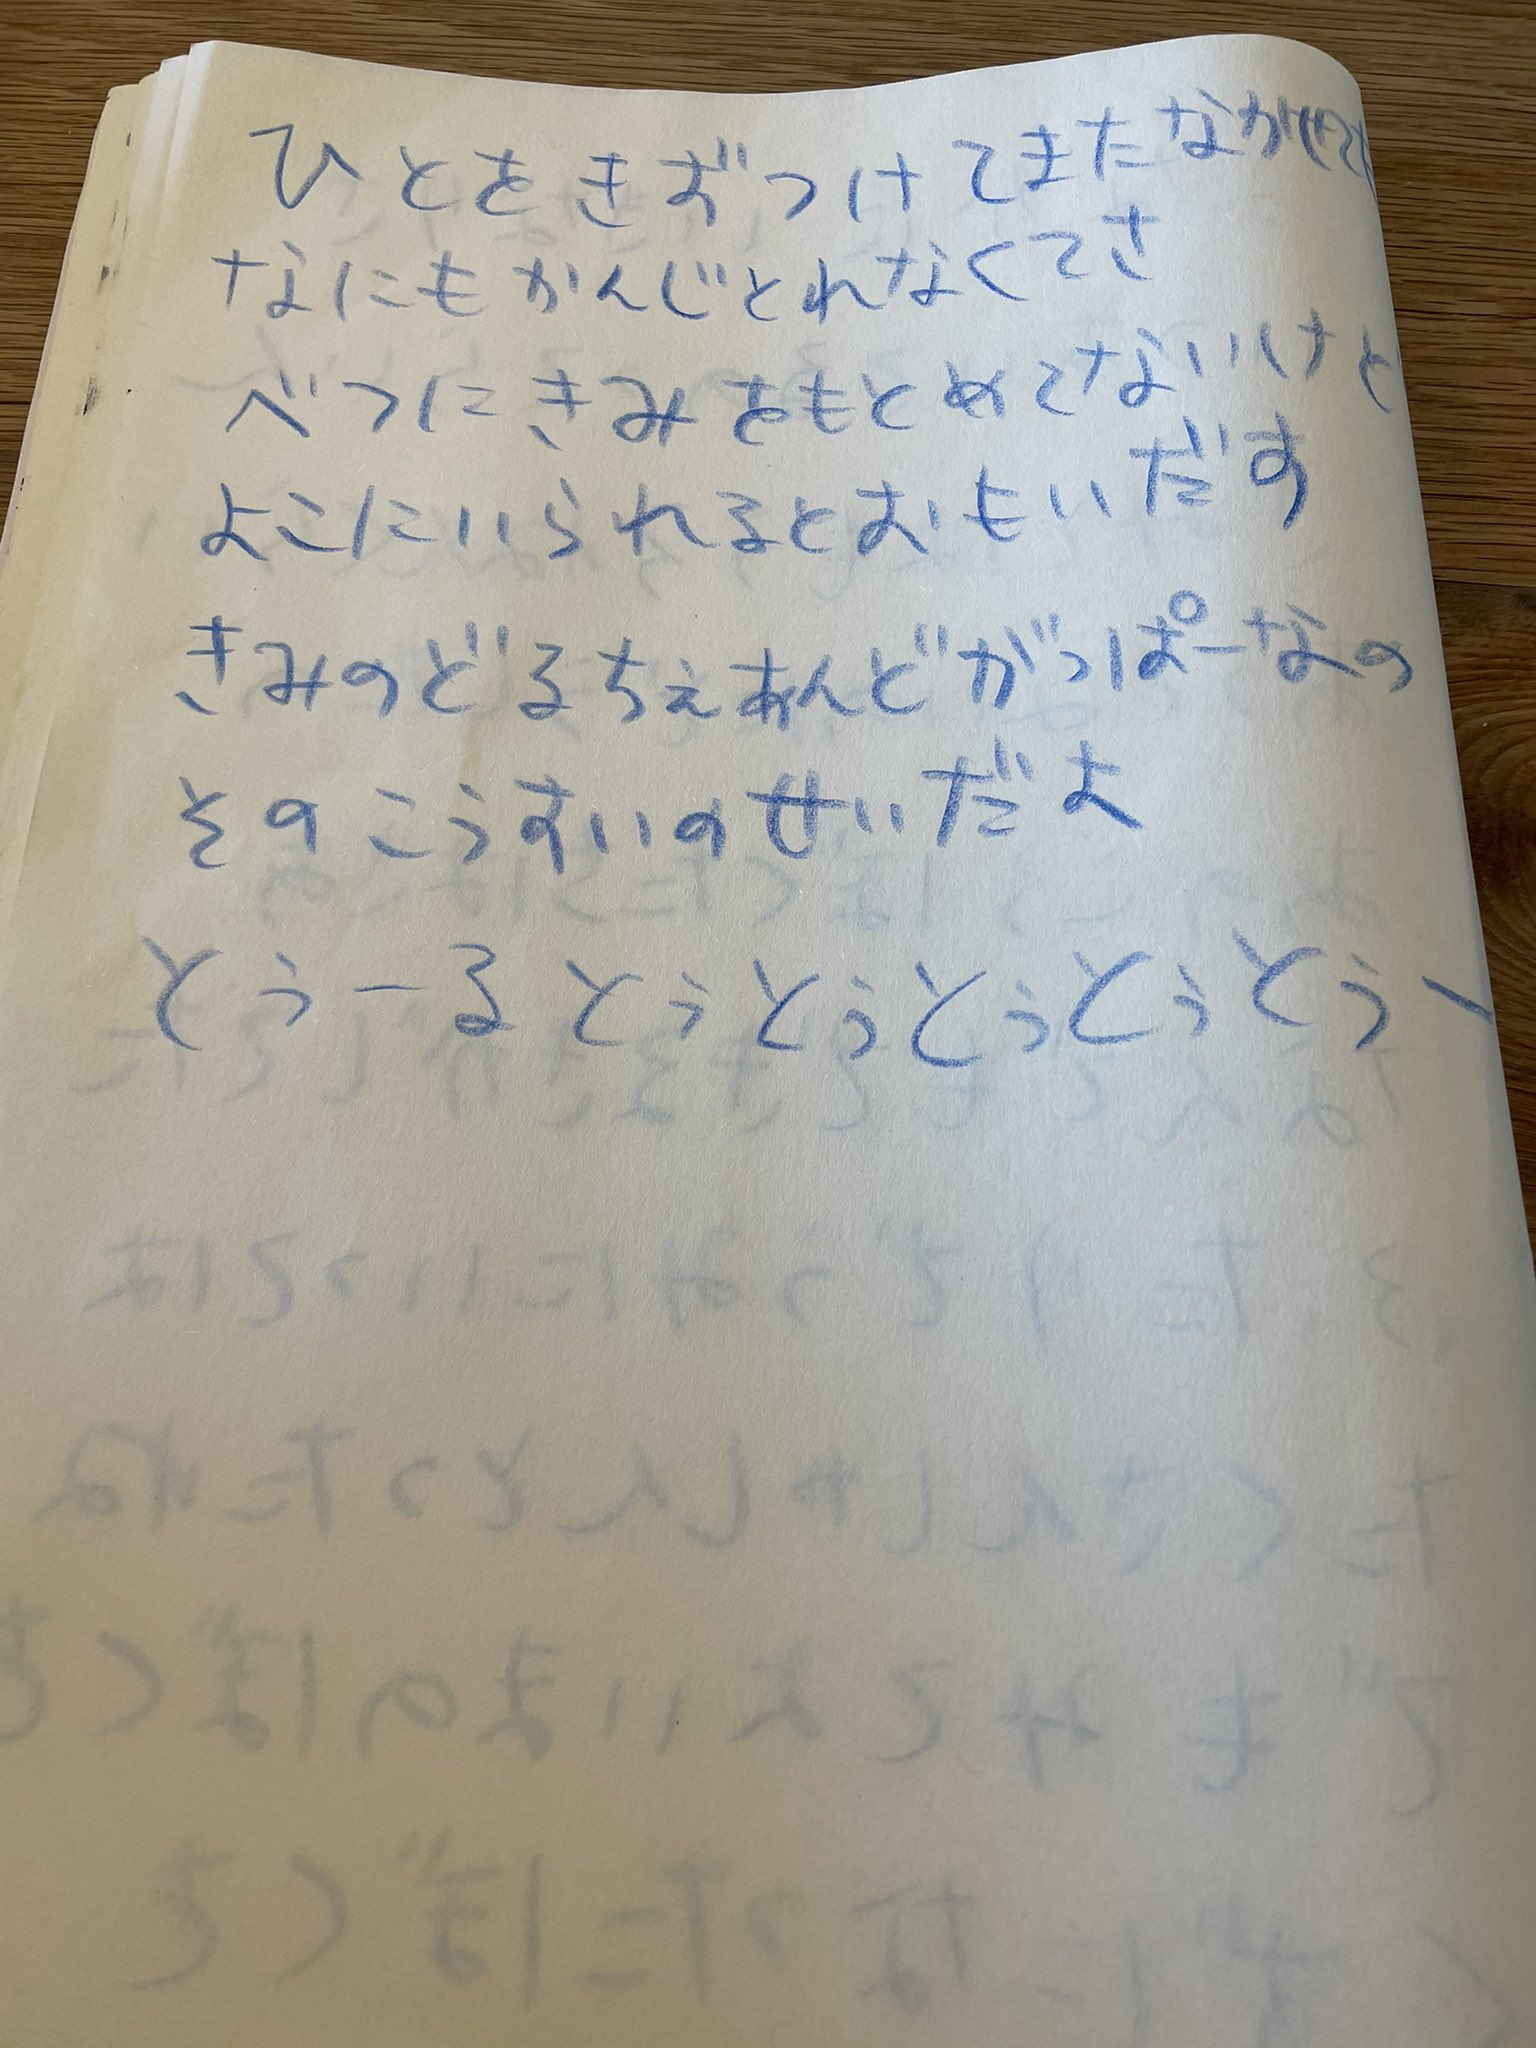 ひとをきずつけてまたなかせても
なにもかんじとれなくてさ
べつにきみをもとめてないけど
よこにいられるとおもいだす
きみのどるちぇあんどがっぱーなの
そのこうすいのせいだよ
とぅーるとぅとぅとぅとぅとぅー